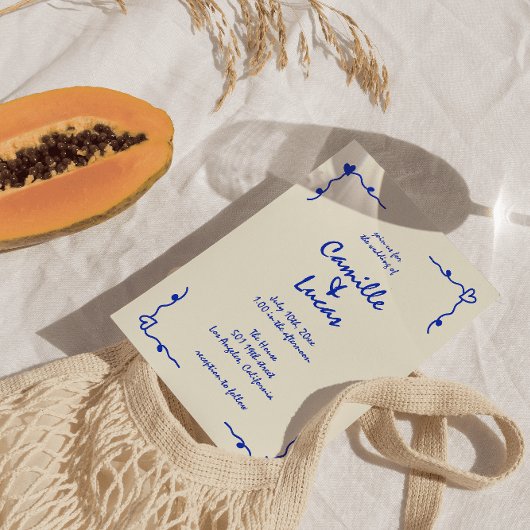 join us for
the wedding of
Camille
&
Lucas
July 10th 20xx
1.00 in the afternoon
The House
501 19th street
Los Angeles, California
reception to follow